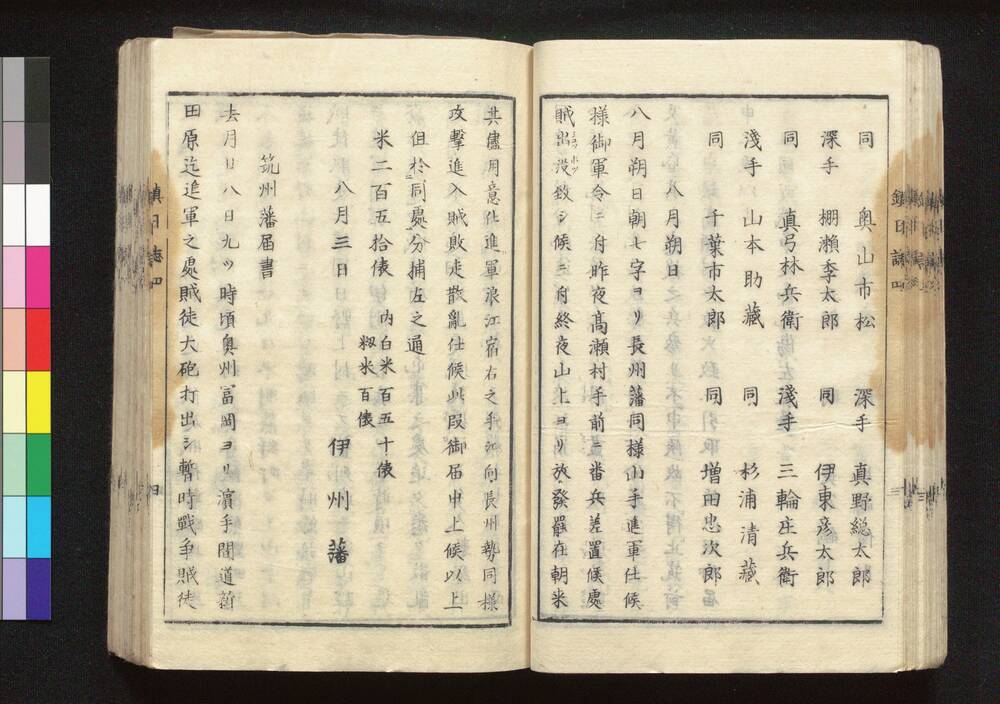 同 奥山市松 深手 真野総太郎
深手 棚瀬季太郎 同 伊東彦太郎
同 真弓林兵衛 淺手 三輪庄兵衛
淺手 山本助藏 同 杉浦清藏
同 千葉市太郎 同 増田忠次郎
八月朔日
八月朔日朝七字ヨリ長州藩同様山手進軍仕候
様御軍令ニ付昨夜髙瀬村手前ニ番兵差置候處
賊出没致シ候ニ付終夜山上ヨリ放發罷在朝来
共儘用意仕進軍浪江宿右之手江向長州勢同様
攻擊進入賊敗走散亂仕候此段御届申上候以上
但於同處分捕左之通
米二百五拾俵 内白米百五十俵
籾米百俵
八月三日 伊州藩
筑州藩届書
去月廿八日九ツ時頃奥州冨岡ヨリ濵手間道新
田原迄進軍之處賊徒大砲打出シ暫時戰争賊徒
鎮日誌四
四